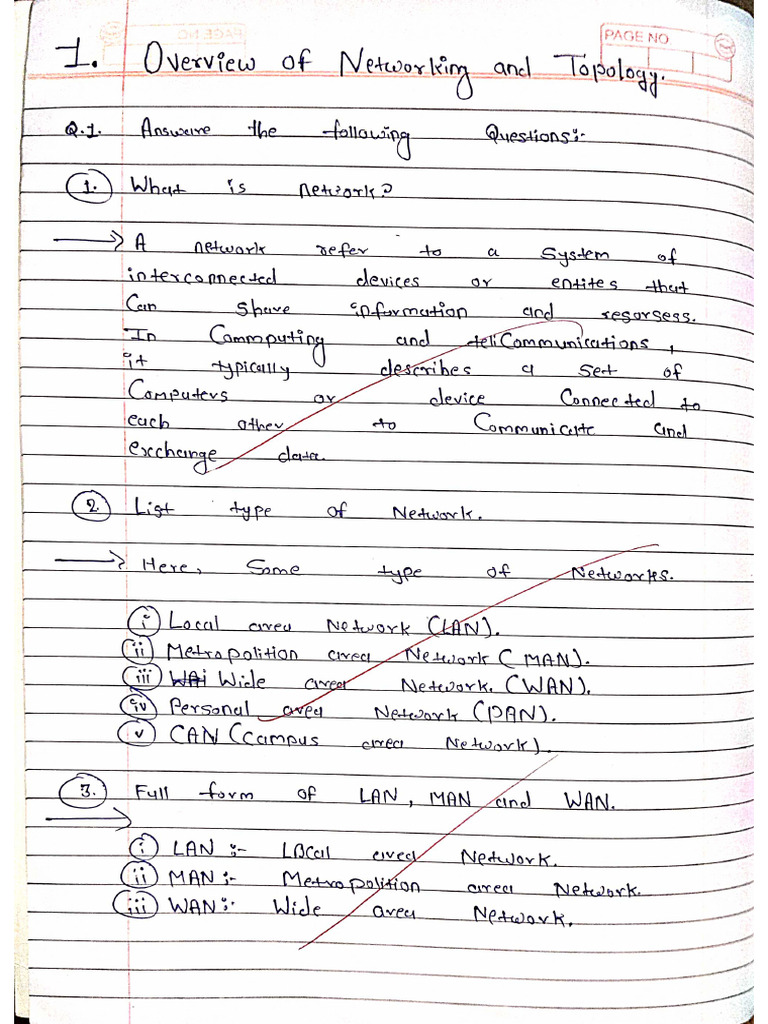 PAGE NO
1. Overview of Networking and Topology.
Q.1. Answare the following Questions:-
1. What is network?
→ A network refer to a system of
interconnected devices or entites that
Can share information and resorsess.
In Commputing and teliCommunications,
it typically describes a set of
Computers or device Connected to
each other to Communicate and
exchange data.
2. List type of Network.
→ Here, Some type of Networks.
i Local area Network (LAN).
ii Metropolition area Network (MAN).
iii Wide area Network. (WAN).
iv Personal area Network (PAN).
v CAN (Campus area Network).
3. Full form of LAN, MAN and WAN.
→
i LAN :- Local area Network.
ii MAN :- Metropolition area Network.
iii WAN :- Wide area Network.